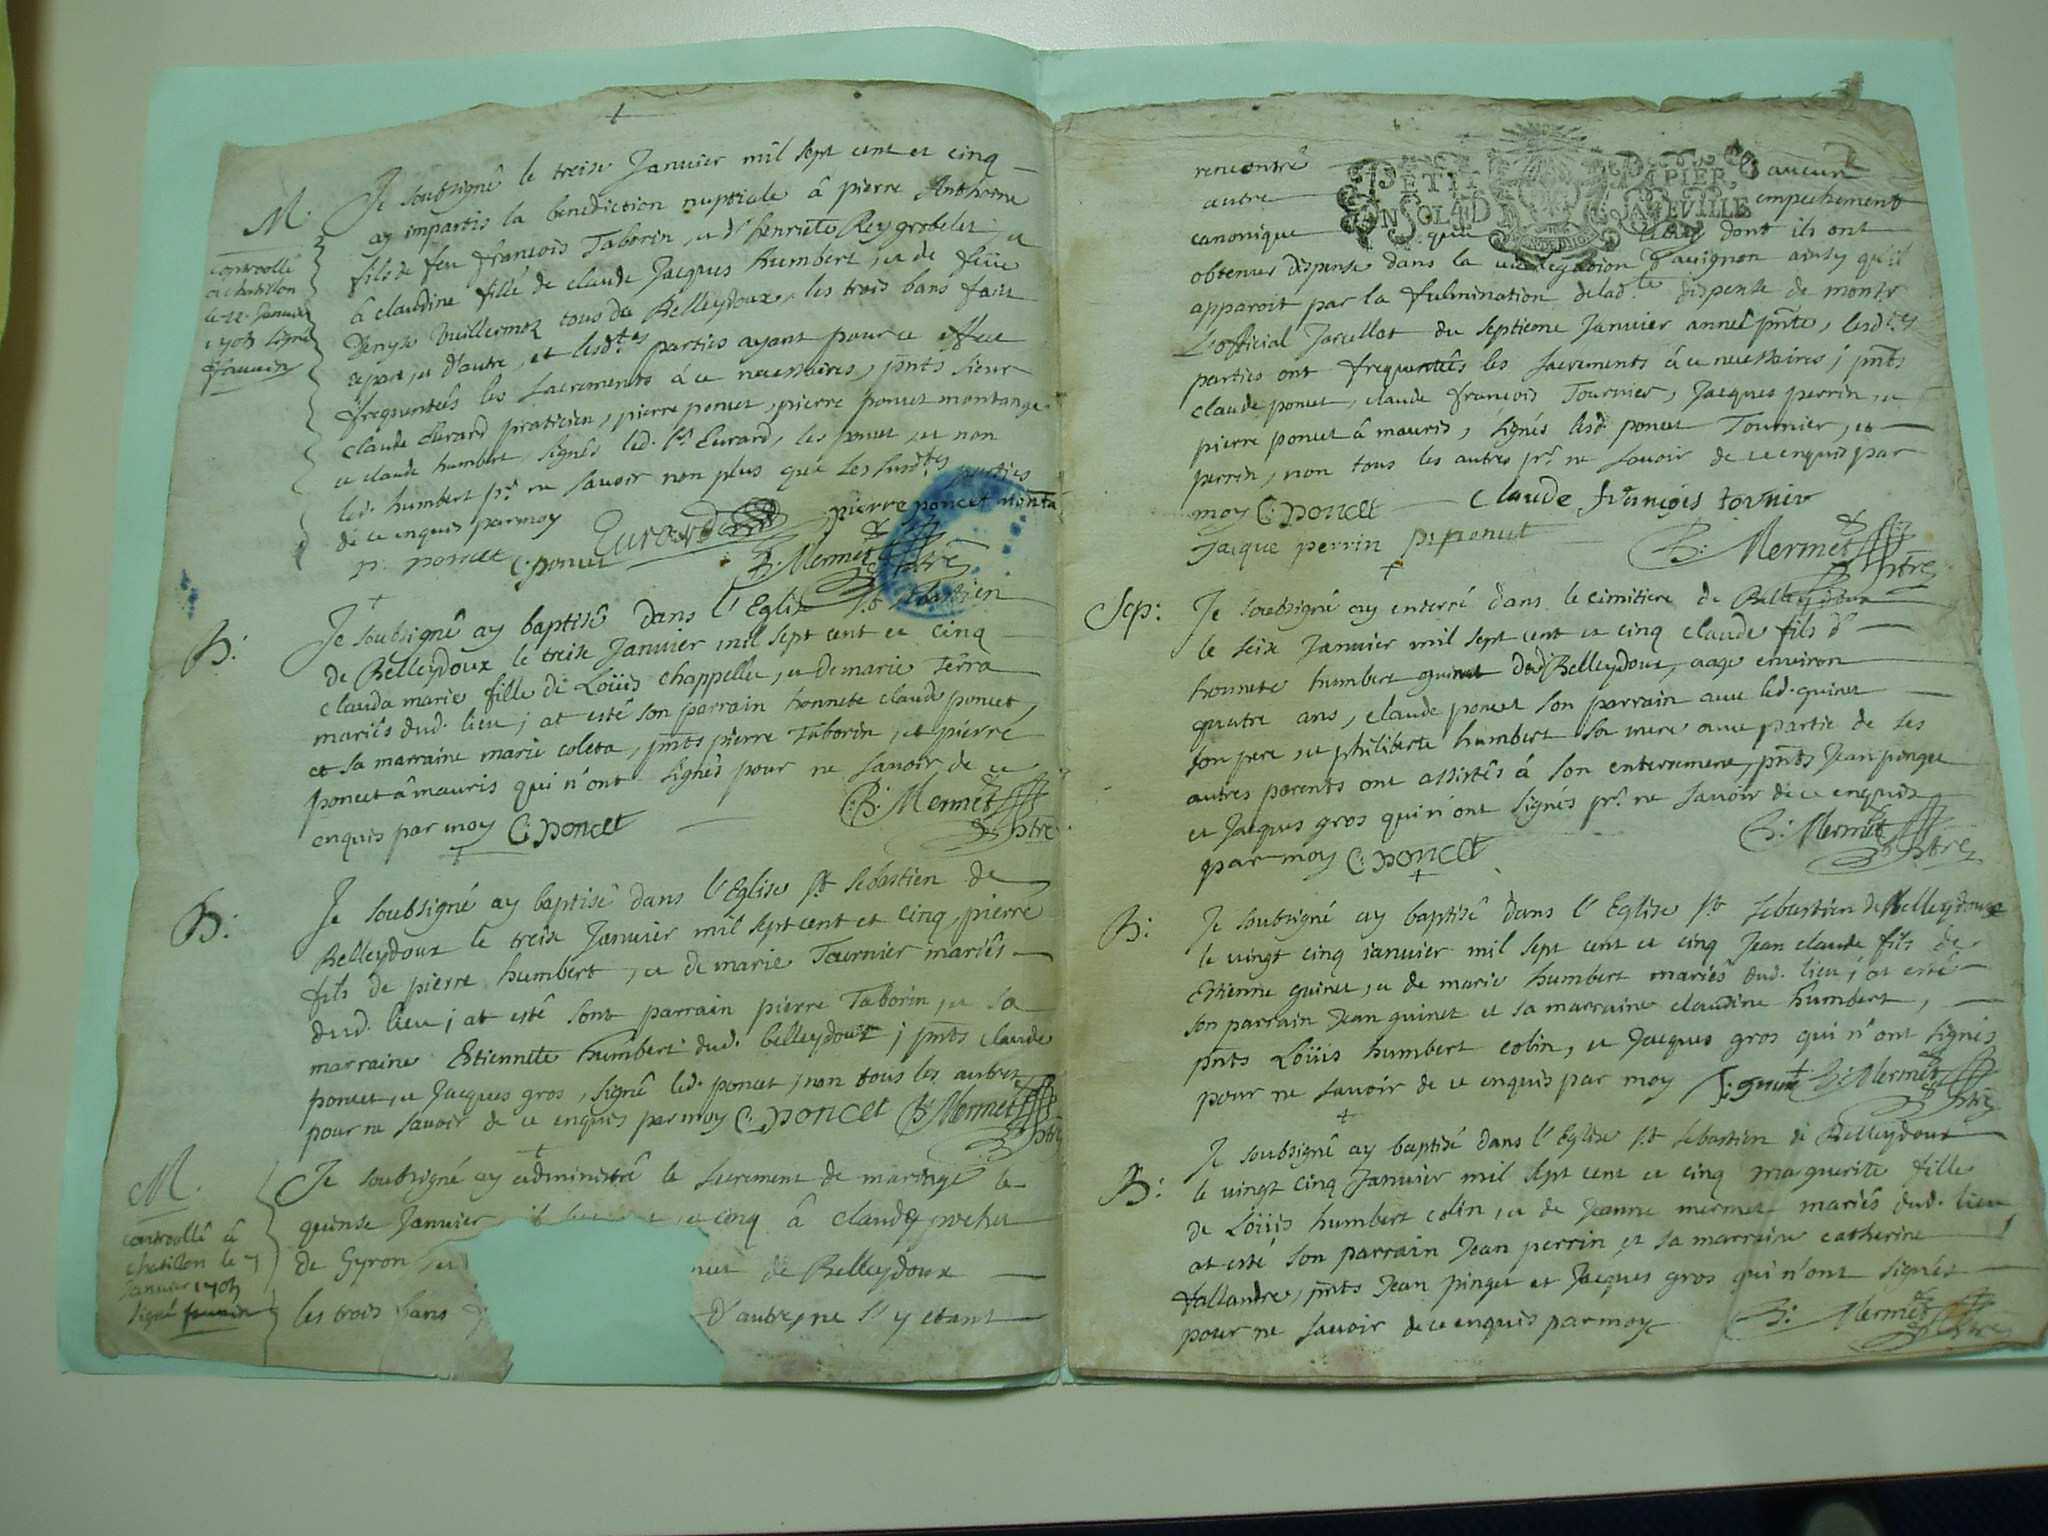 M.
controollé
a chatillon
le 22. Janvier
1705 signé
Je soubsigné le treise Janvier mil sept cent et cinq
ay impartis la benediction nuptiale â pierre Anthoine
fils de feu françois Taborin, et d'henriete Reygrobelet, et
â claudine fille de claude Jacques humbert, et de feüe
Denyse Muillermoz tous de Belleydoux, les trois bans fait
et d'autre, et lesd.tes parties ayant pour ce effect
frequentéés les sacrements â ce necessaires, pnts sieur
claude Eurard praticien, pierre poncet, pierre poncet montange
et claude humbert, signés led. sr Eurard, les poncet, et non
led. humbert pr ne savoir non plus que les susd.tes parties
de ce enquis par moy Eurard pierre poncet monta
p. poncet C: poncet B: Mermet ptre
B:
Je soubsigné ay baptisé dans l'Eglise st sebastien
de Belleydoux le treise Janvier mil sept cent et cinq
clauda marie fille de Loüis chappellu, et de marie Terra
mariés dud. lieu; at esté son parrain honnete claude poncet,
et sa marraine marie coleta, pnts pierre Taborin, et pierre
poncet â mauris qui n'ont signés pour ne savoir de ce
enquis par moy C: poncet B: Mermet ptre
B:
Je soubsigné ay baptisé dans l'Eglise st sebastien de
Belleydoux le treise Janvier mil sept cent et cinq, pierre
fils de pierre humbert, et de marie Tournier mariés
dud. lieu; at esté sont parrain pierre Taborin, et sa
marraine Estiennete humbert dud. belleydoux; pnts claude
poncet, et Jacques gros, signé led. poncet, non tous les autres
pour ne savoir de ce enquis par moy C: poncet B: Mermet ptre
M.
controollé â
chatillon le
Janvier 1705
signé
Je soubsigné ay administré le sacrement de mariage le
quinse Janvier et cinq â claude pochet
de Gyron et de Belleydoux
les trois bans d'autre, ne s'y etant
PETIT PAPIER,
UN SOL 4 D LA FEVILLE
rencontré aucun
autre empechement
canonique que dont ils ont
obtenus dispense dans la vicelegation d'avignon ainsy qu'il
apparoit par la fulmination de lad.te dispense de monsr
L'official Jarcellat du septieme Janvier anneé pnte, lesd.tes
parties ont frequentéés les sacrements â ce necessaires; pnts
claude poncet, claude françois Tournier, Jacques perrin, et
pierre poncet â mauris, signés lesd. poncet Tournier, et
perrin, non tous les autres pr ne savoir de ce enquis par
moy C: poncet claude françois tornier
Jacque perrin p. poncet B: Mermet ptre
Sep:
Je soubsigné ay enterré dans le cimitiere de Belleydoux
le seise Janvier mil sept cent et cinq claude fils d'
honnete humbert guinet dud. Belleydoux, aage environ
quatre ans, claude poncet son parrain avec led. guinet
son pere et philiberte humbert sa mere avec partie de ses
autres parents ont assistés â son enterrement, pnts Jean pinget
et Jacques gros qui n'ont signés pr ne savoir de ce enquis
par moy C: poncet B: Mermet ptre
B:
Je soubsigné ay baptisé dans l'Eglise st sebastien de Belleydoux
le vingt cinq ianvier mil sept cent et cinq Jean claude fils de
Estienne guinet, et de marie humbert mariés dud. lieu; at esté
son parrain Jean guinet et sa marraine claudine humbert,
pnts Loüis humbert colin, et Jacques gros qui n'ont signés
pour ne savoir de ce enquis par moy J. guinet B: Mermet ptre
B:
Je soubsigné ay baptisé dans l'Eglise st sebastien de Belleydoux
le vingt cinq Janvier mil sept cent et cinq marguerite fille
de Loüis humbert colin, et de Jeanne mermet mariés dud. lieu
at esté son parrain Jean perrin et sa marraine catherine
vallandre, pnts Jean pinget et Jacques gros qui n'ont signés
pour ne savoir de ce enquis par moy
B: Mermet ptre